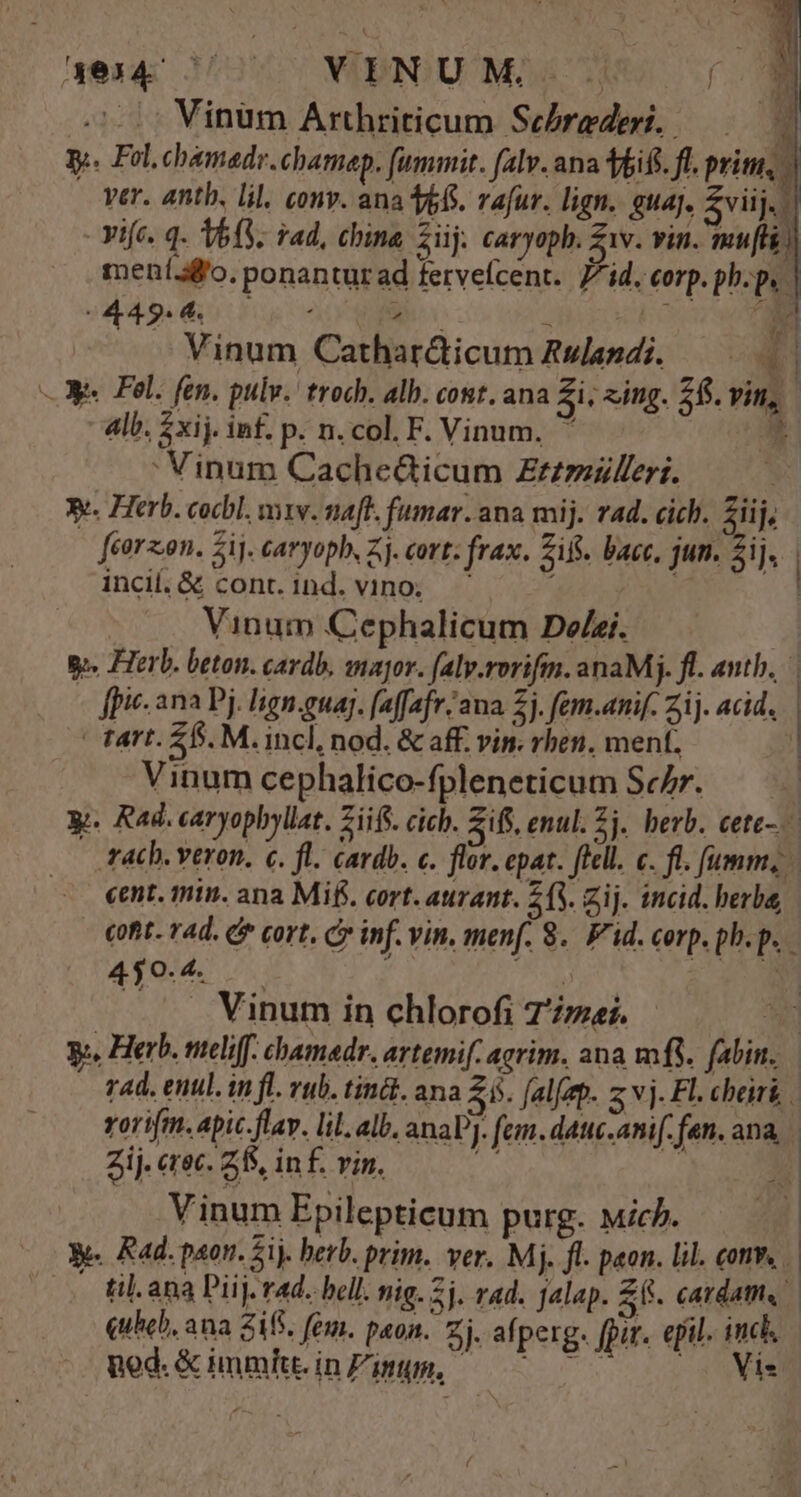 1014 VINUM.
Vinum Arthriticum Schræderi.
℞. Fol. chamædr. chamæp. ſummit. ſalv. ana ℔iß. fl. prim.
ver. anth. lil. conv. ana ℔ß. raſur. lign. guaj. ℥viij.
viſc. q. ℔ß. rad, chinæ ℥iij. caryoph. ℥iv. vin. muſti
menſ. ponantur ad ferveſcent. Vid. corp. ph. p.
449. 4.
Vinum Catharcticum Rulandi.
℞. Fol. ſen. pulv. troch. alh. cont. ana ℥i, zing. ʒß. vin.
alb. ℥xij. inf. p. n. col. F. Vinum.
Vinum Cachecticum Ettmülleri.
℞. Herb. cochl. mıv. naſt. fumar. ana mij. rad. cich. ℥iij.
ſcorzon. ℥ij. caryoph. ʒj. cort. frax. ℥iß. bacc. jun. ℥ij.
inciſ. & cont. ind. vino.
Vinum Cephalicum Dolæi.
℞. Herb. beton. cardb. major. ſalv. roriſm. ana Mj. fl. anth.
ſpic. ana Pj. lign. guaj. ſaſſafr. ana ℥j. ſem. aniſ. ʒij. acid.
tart. ℥ß. M. incl, nod. & aff. vin. rhen. menſ.
Vinum cephalico-ſpleneticum Schr.
℞. Rad. caryophyllat. ℥iiß. cich. ℥iß, enul. ℥j. herb. cete-
rach. veron. c. fl. cardb. c. flor. epat. ſtell. c. fl. ſumm.
cent. min. ana Miß. cort. aurant. ℥ß. ʒij. incid. herbæ
cont. rad. & cort. & inf. vin. menſ. 8. Vid. corp. ph. p.
450. 4.
Vinum in chloroſi Timæi.
℞. Herb. meliſſ. chamædr. artemiſ. agrim. ana mß. ſabin.
rad. enul. in fl. rub. tinct. ana ℥ß. ſalſap. ʒvj. Fl. cheiri
roriſm. apic. flav. lil. alb. ana Pj. ſem. dauc. aniſ. fœn. ana
ʒij. croc. ʒß, inf. vin.
Vinum Epilepticum purg. Mich.
℞. Rad. pæon. ℥ij. herb. prim. ver. Mj. fl. pæon. lil. conv.
til. ana Piij. rad. hell. nig. ℥j. rad. jalap. ℥ß. cardam.
cubeb. ana ʒiß. ſem. pæon. ʒj. aſperg. ſpir. epil. incl.
nod. & immitt. in Vinum.
Vi-